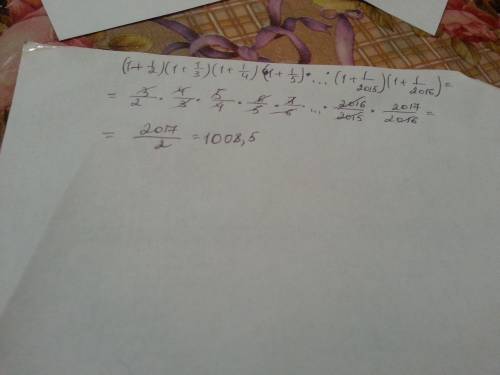 (1+1/2)(1+1/3)(1+1/4)(1+1/5)·...·(1+1/2015)(1+1/2016)=
= 3/2 · 4/3 · 5/4 · 6/5 · 7/6 · ... · 2016/2015 · 2017/2016 =
= 2017/2 = 1008,5